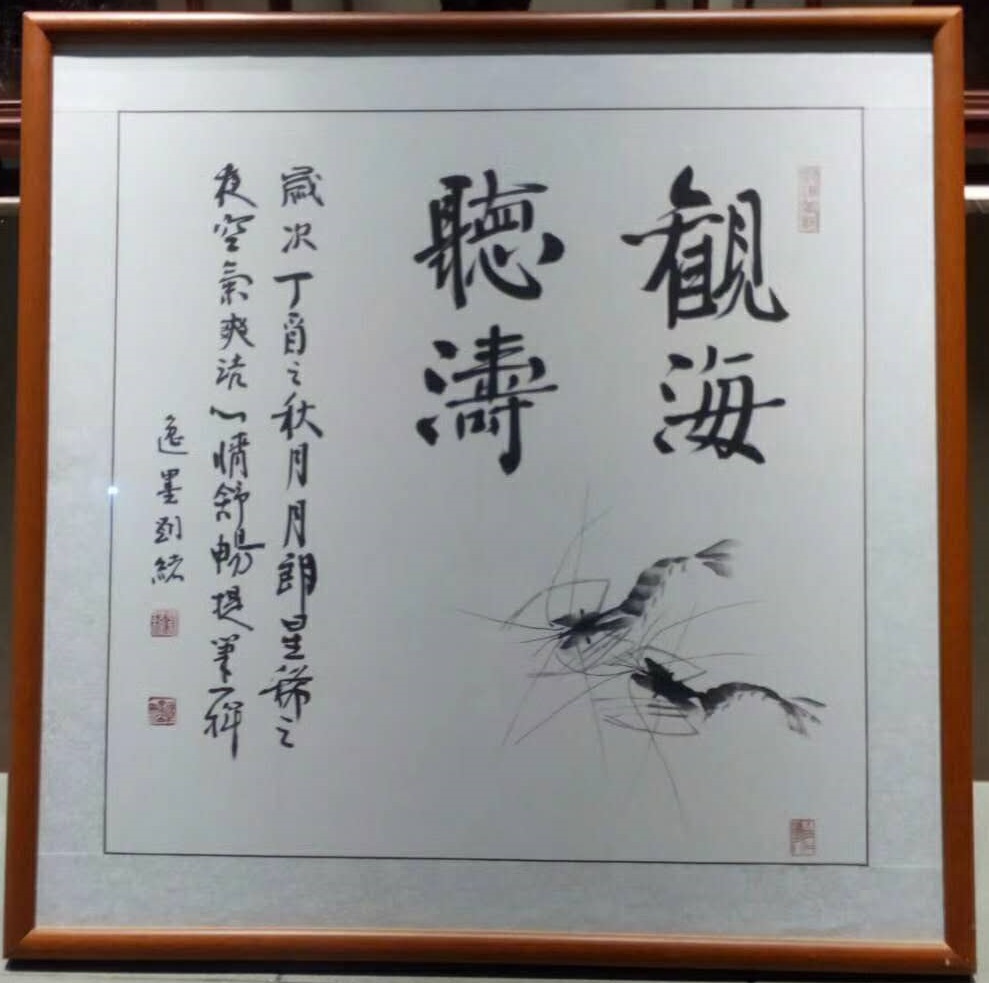 觀海
聽濤
歲次丁酉之秋月月朗星稀之
夜空氣爽洁心情舒暢提筆一揮
逸墨刘緒